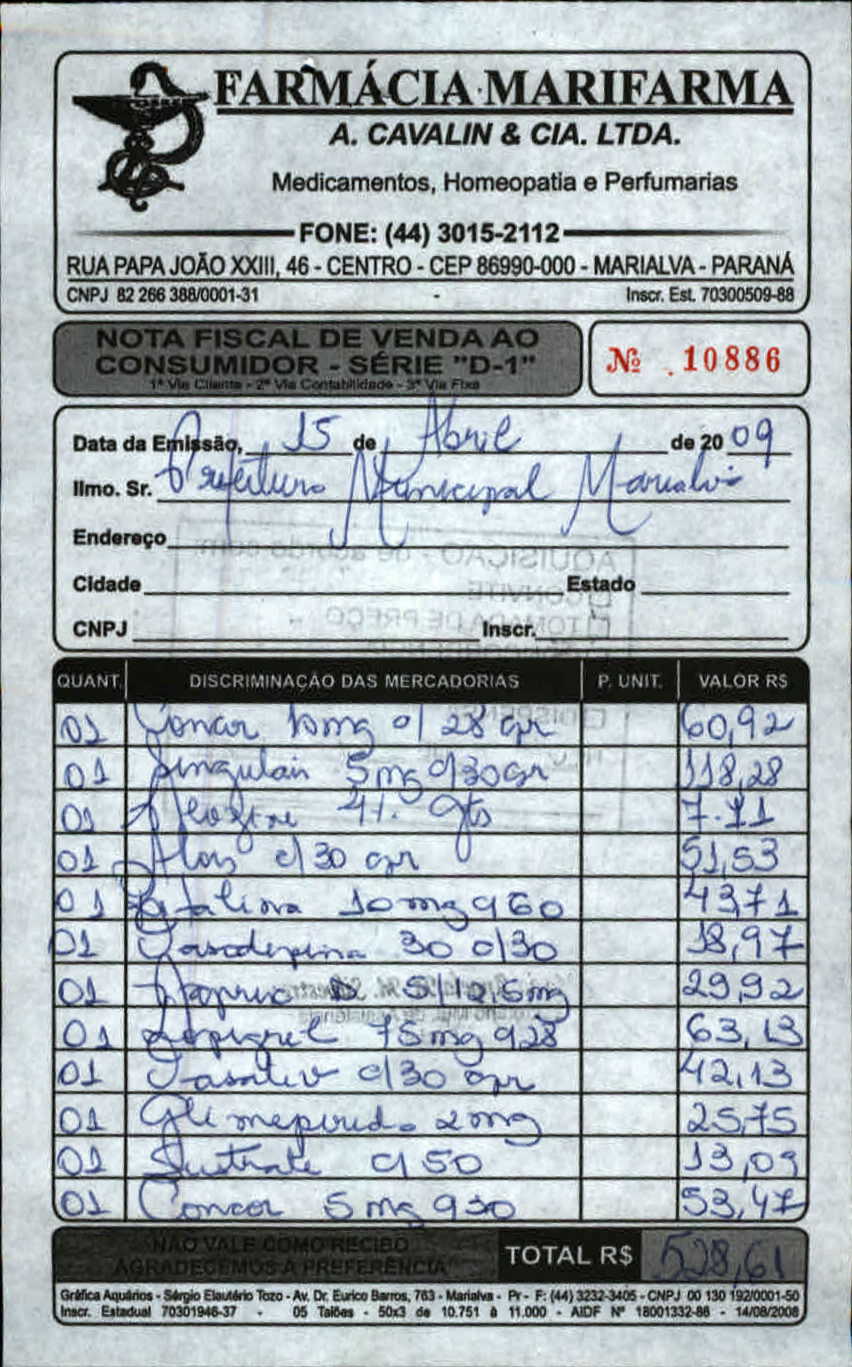 FARMÁCIA MARIFARMA
A. CAVALIN & CIA. LTDA.
Medicamentos, Homeopatia e Perfumarias
FONE: (44) 3015-2112
RUA PAPA JOÃO XXIII, 46 - CENTRO - CEP 86990-000 - MARIALVA - PARANÁ
CNPJ 82 266 388/0001-31 - Inscr. Est. 70300509-88
NOTA FISCAL DE VENDA AO
CONSUMIDOR - SÉRIE "D-1"
1ª Via Cliente - 2ª Via Contabilidade - 3ª Via Fixa
Nº 10886
Data da Emissão, 15 de Abril de 20 09
Ilmo. Sr. Prefeitura Municipal Marialva
Endereço
Cidade Estado
CNPJ Inscr.
QUANT. DISCRIMINAÇÃO DAS MERCADORIAS P. UNIT. VALOR R$
01 Concor 10mg c/ 28 cpr 60,92
01 Singulair 5mg c/30cpr 118,28
01 4%. gts 7.71
01 c/30 cpr 51,53
01 10mg c/60 43,71
01 30 c/30 18,97
01 5/12,5mg 29,92
01 75mg c/28 63,13
01 c/30 cpr 42,13
01 Glimepirida 2mg 25,75
01 Sustrate c/50 13,09
01 Concor 5mg c/30 53,47
NÃO VALE COMO RECIBO
AGRADECEMOS A PREFERÊNCIA
TOTAL R$ 528,61
Gráfica Aquários - Sérgio Elautério Tozo - Av. Dr. Eurico Barros, 763 - Marialva - Pr - F: (44) 3232-3405 - CNPJ 00 130 192/0001-50
Inscr. Estadual 70301946-37 - 05 Talões - 50x3 de 10.751 à 11.000 - AIDF Nº 18001332-86 - 14/08/2008